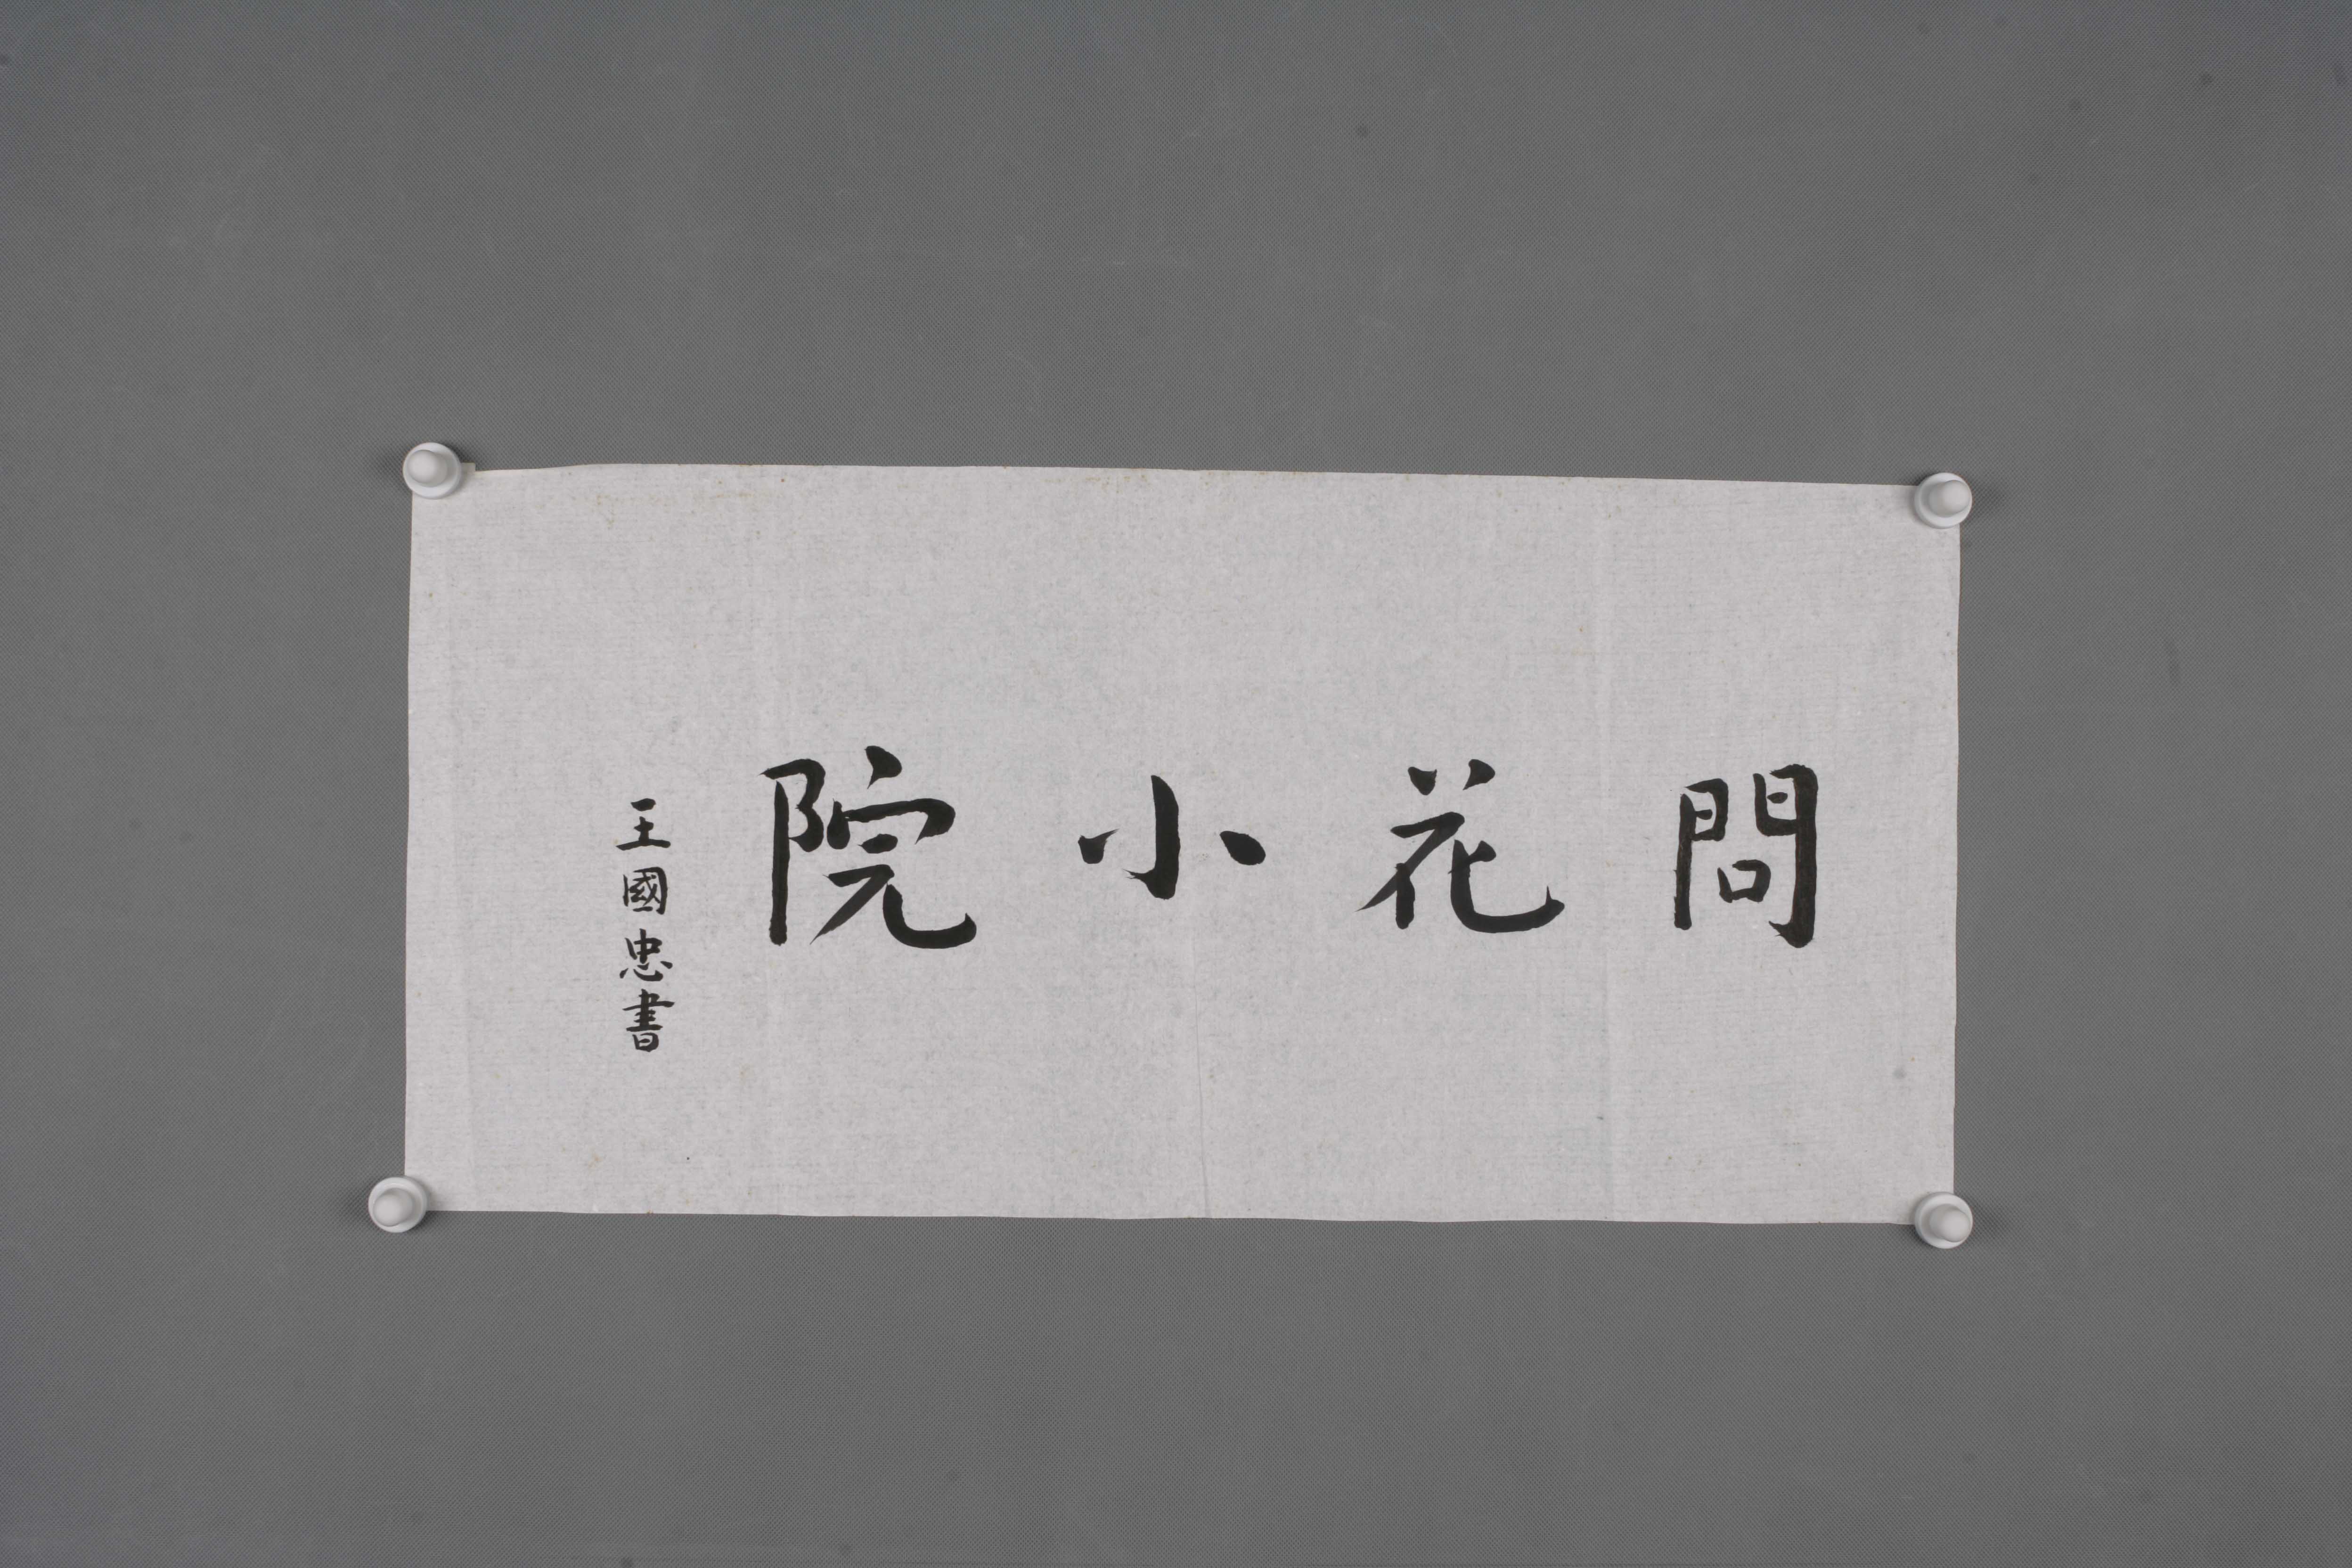 問花小院
王國忠書